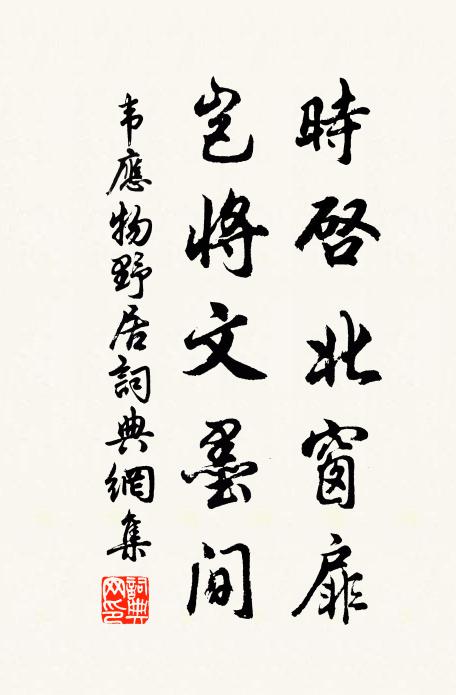 時啓北窗扉
岂將文墨间
韦應物野居詞典網集
詞典网印